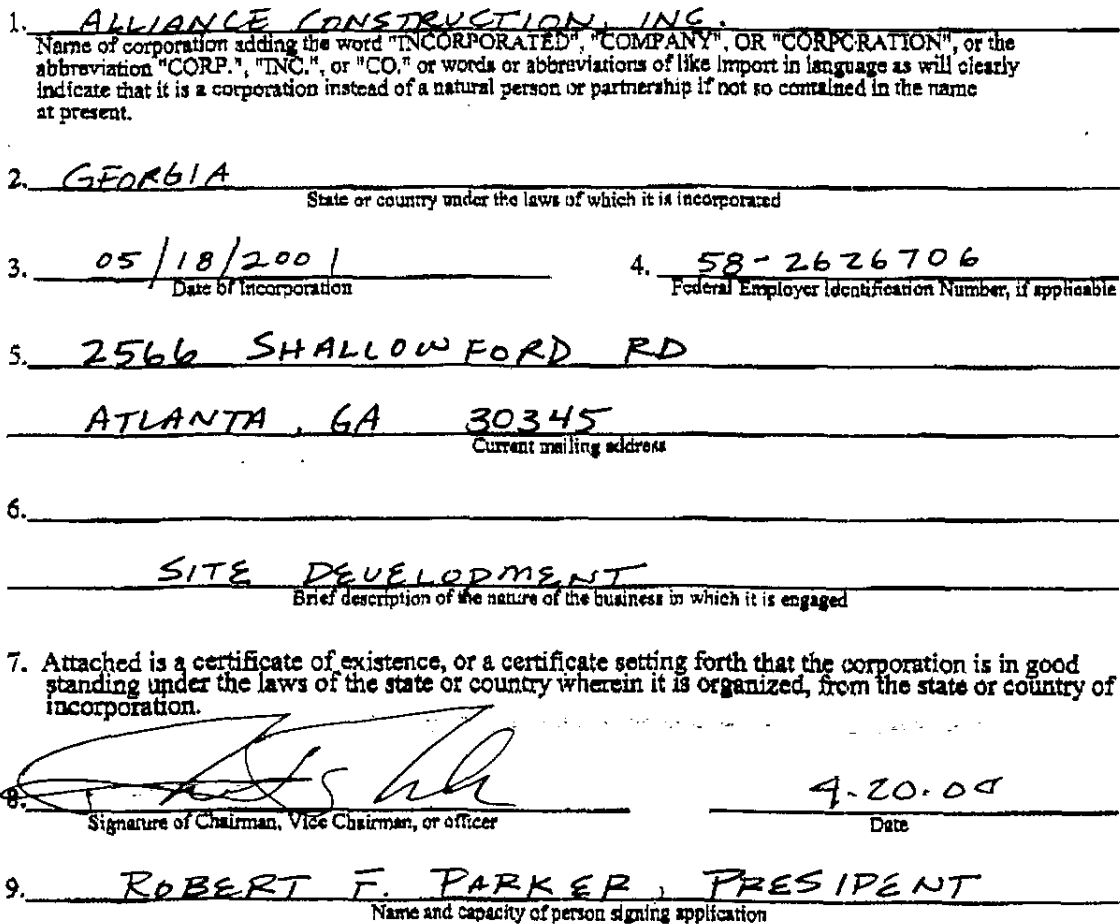 1. ALLIANCE CONSTRUCTION, INC.
Name of corporation adding the word "INCORPORATED", "COMPANY", OR "CORPORATION", or the
abbreviation "CORP.", "INC.", or "CO." or words or abbreviations of like import in language as will clearly
indicate that it is a corporation instead of a natural person or partnership if not so contained in the name
at present.
2. GEORGIA
State or country under the laws of which it is incorporated
3. 05/18/2001 4. 58-2626706
Date of Incorporation Federal Employer Identification Number, if applicable
5. 2566 SHALLOWFORD RD
ATLANTA, GA 30345
Current mailing address
6.
SITE DEVELOPMENT
Brief description of the nature of the business in which it is engaged
7. Attached is a certificate of existence, or a certificate setting forth that the corporation is in good
standing under the laws of the state or country wherein it is organized, from the state or country of
incorporation.
8.
Signature of Chairman, Vice Chairman, or officer Date
9. ROBERT F. PARKER, PRESIDENT
Name and capacity of person signing application